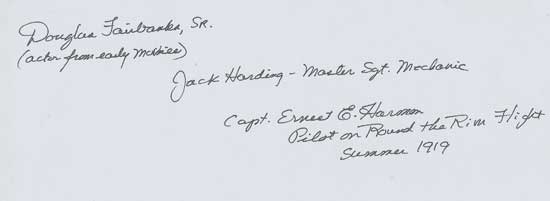 Douglas Fairbanks, Sr.
(actor from early movies)
Jack Harding - Master Sgt. Mechanic
Capt. Ernest E. Harmon
Pilot on Round the Rim Flight
Summer 1919